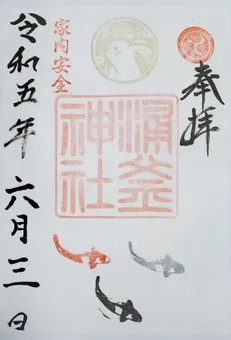 奉拝
涌釜
神社
家内安全
令和五年 六月三日